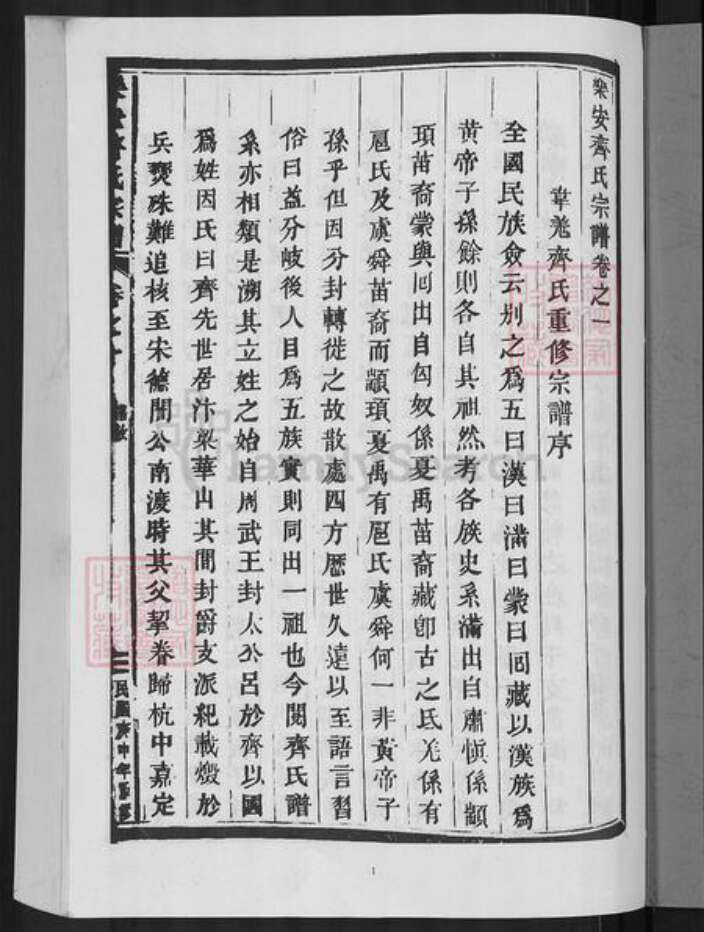 樂安齊氏宗譜卷之一
葦羗齊氏重修宗譜序
全國民族僉云别之爲五曰漢曰滿曰蒙曰囘藏以漢族爲
黄帝子孫餘則各自其祖然考各族史系滿出自肅愼係顓
頊苗裔蒙與囘出自匈奴係夏禹苗裔藏卽古之氐羌係有
扈氏及虞舜苗裔而顓頊夏禹有扈氏虞舜何一非黃帝子
孫乎但因分封轉徙之故散處四方歷世久遠以至語言習
俗日益分岐後人目爲五族實則同出一祖也今閱齊氏譜
系亦相類是溯其立姓之始自周武王封太公呂於齊以國
爲姓因氏曰齊先世居汴梁華山其間封爵支派紀載燬於
兵燹殊難追核至宋德闇公南渡時其父挈眷歸杭中嘉定
樂安齊氏宗譜
卷之一
民國庚申年重修
FamilySearch
1